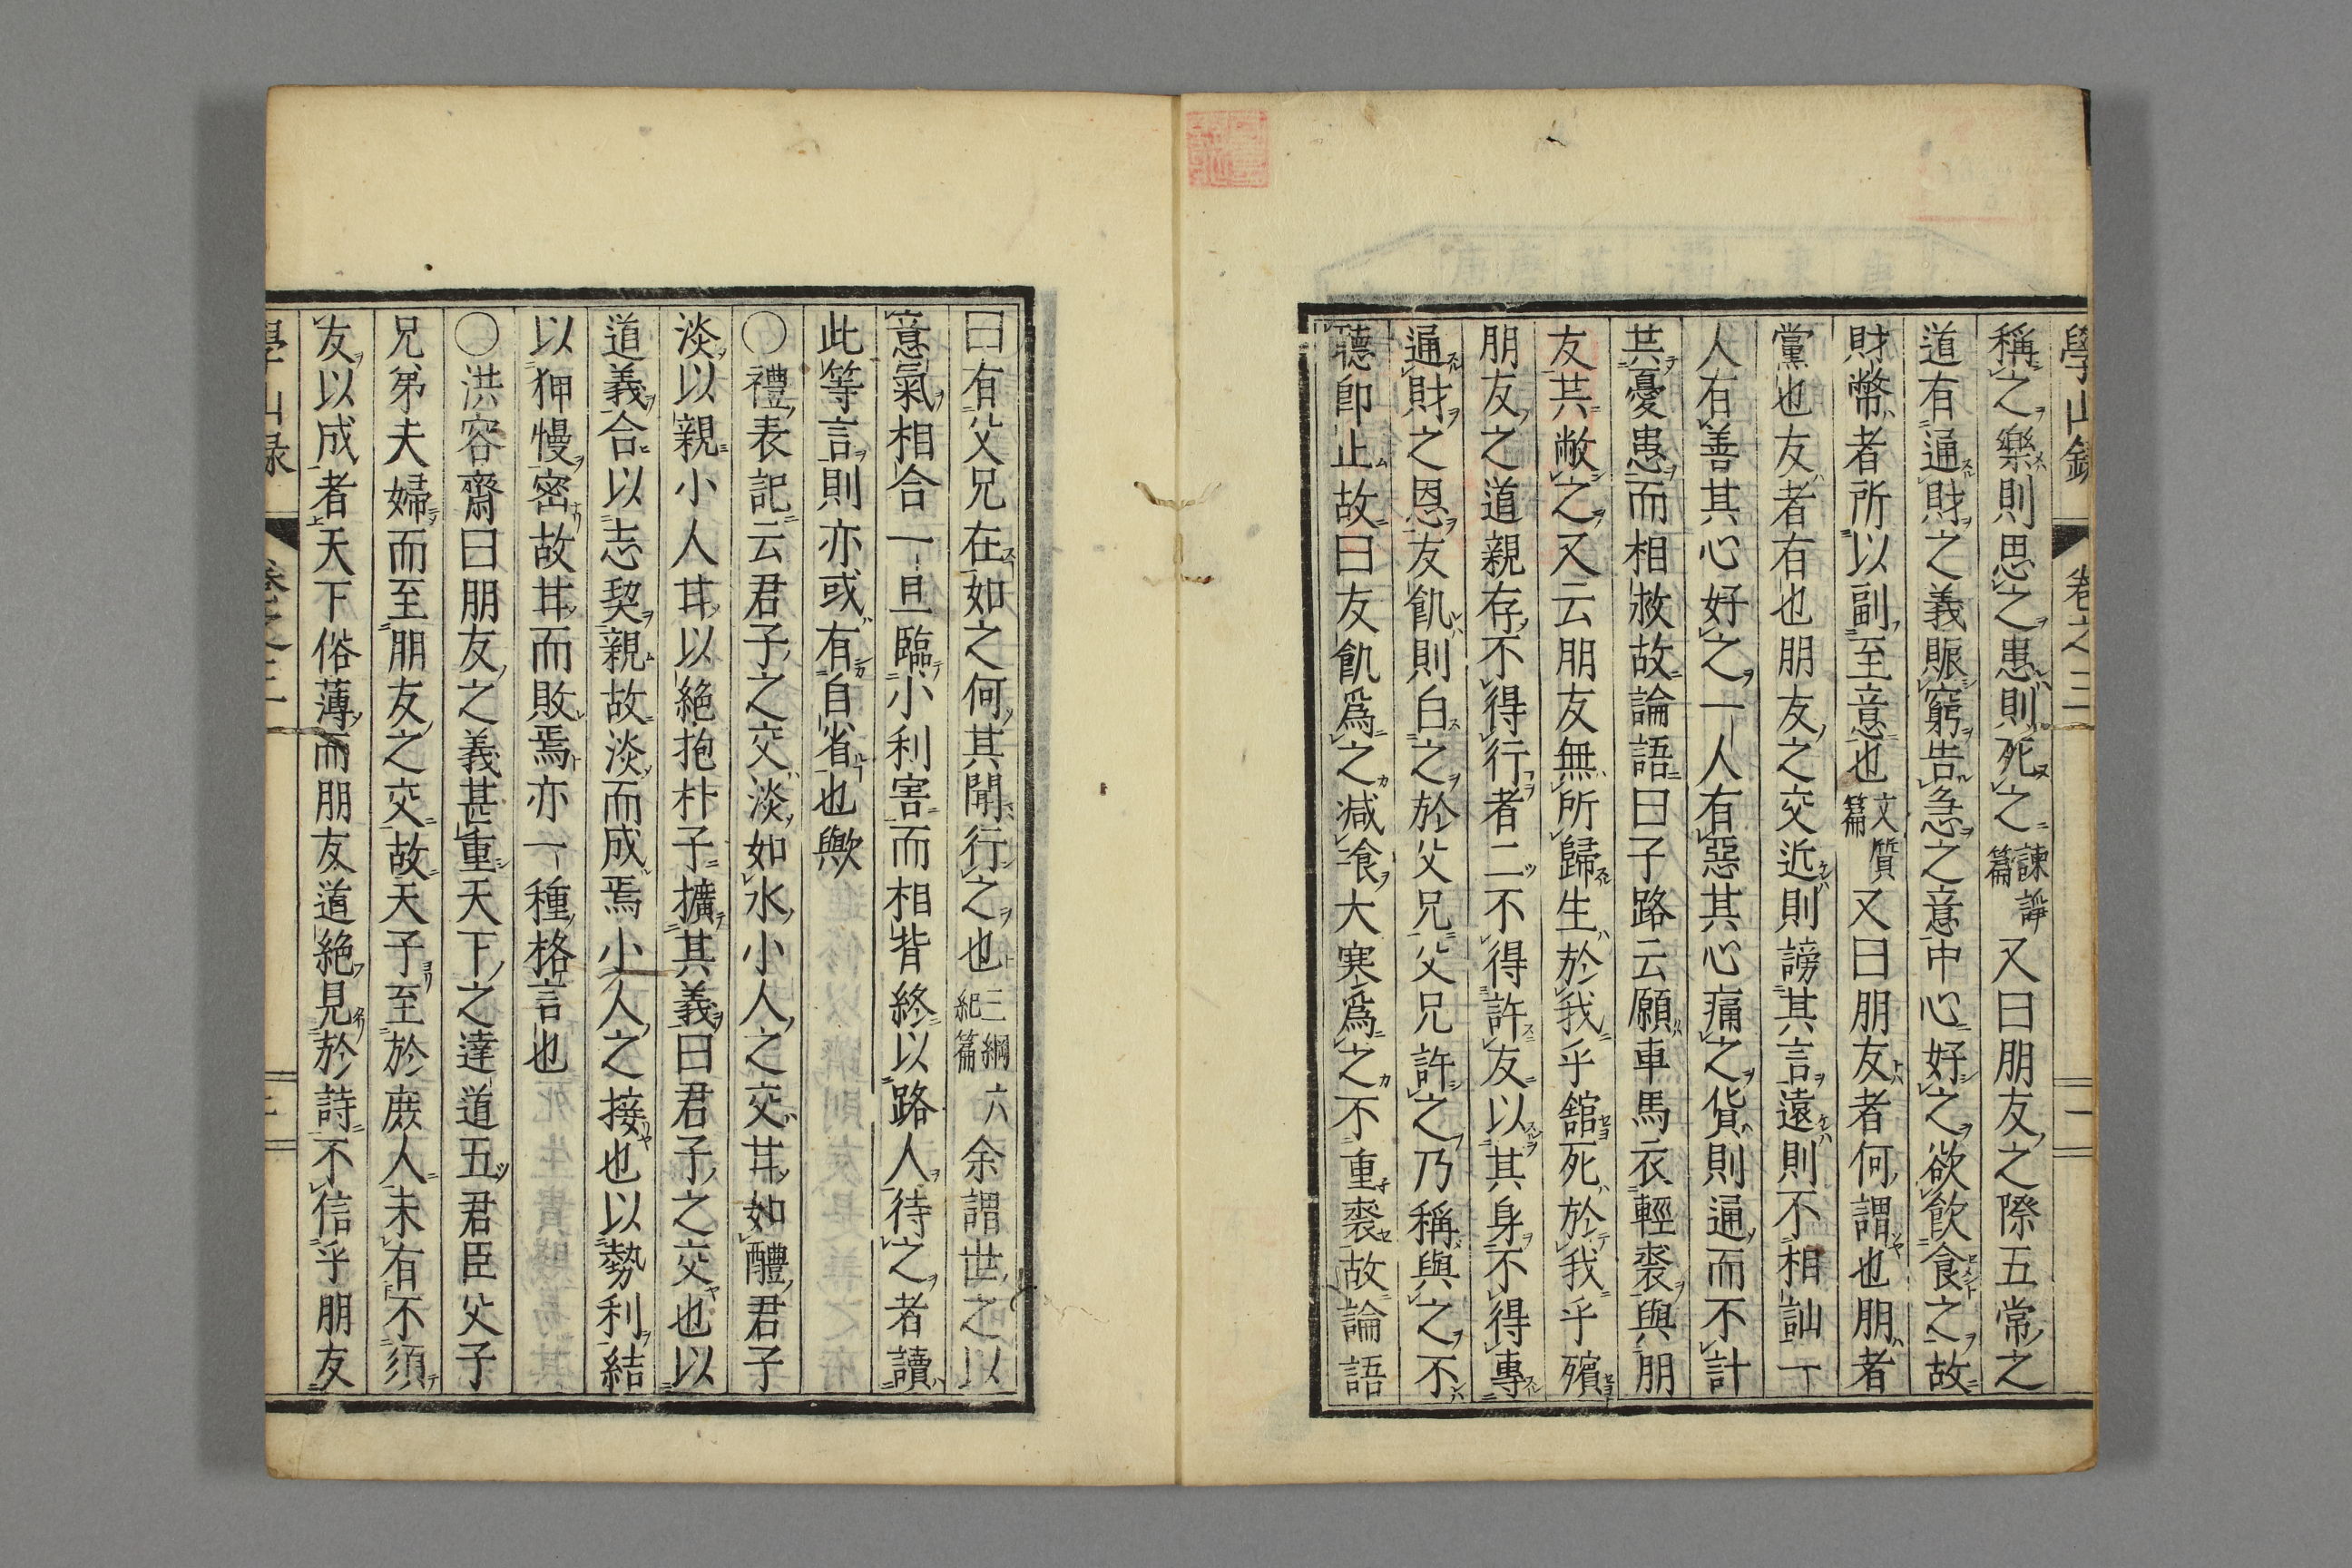 學山錄 卷之三 一
稱之樂則思之患則死之諫諍篇又曰朋友之際五常之
道有通財之義賑窮告急之意中心好之欲飮食之故
財幣者所以副至意也文質篇又曰朋友者何謂也朋者
黨也友者有也朋友之交近則謗其言遠則不相訕一
人有善其心好之一人有惡其心痛之貨則通而不計
共憂患而相救故論語曰子路云願車馬衣輕裘與朋
友共敝之又云朋友無所歸生於我乎館死於我乎殯
朋友之道親存不得行者二不得許友以其身不得專
通財之恩友飢則白之於父兄父兄許之乃稱與之不
聽卽止故曰友飢爲之減飡大寒爲之不重裘故論語
曰有父兄在如之何其聞行之也三綱六紀篇余謂世之以
意氣相合一旦臨小利害而相背終以路人待之者讀
此等言則亦或有自省也歟
○禮表記云君子之交淡如水小人之交甘如醴君子
淡以親小人甘以絕抱朴子擴其義曰君子之交也以
道義合以志契親故淡而成焉小人之接也以勢利結
以狎慢密故甘而敗焉亦一種格言也
○洪容齋曰朋友之義甚重天下之達道五君臣父子
兄弟夫婦而至朋友之交故天子至於庶人未有不須
友以成者天下俗薄而朋友道絕見於詩不信乎朋友
學山錄 卷之三